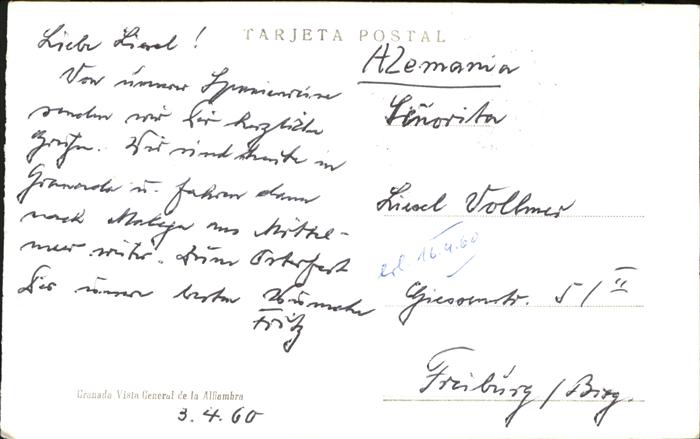 TARJETA POSTAL
Liebe Liesel!
Von unserer Spanienreise
senden wir Dir herzliche
Grüße. Wir sind heute in
Granada u. fahren dann
nach Malaga ans Mittel-
meer weiter. Zum Osterfest
Dir unsere besten Wünsche
Fritz
Alemania
Señorita
Liesel Vollmer
erl. 16.4.60
Giessenstr. 51/II
Freiburg/Brsg.
Granada Vista General de la Alhambra
3.4.60